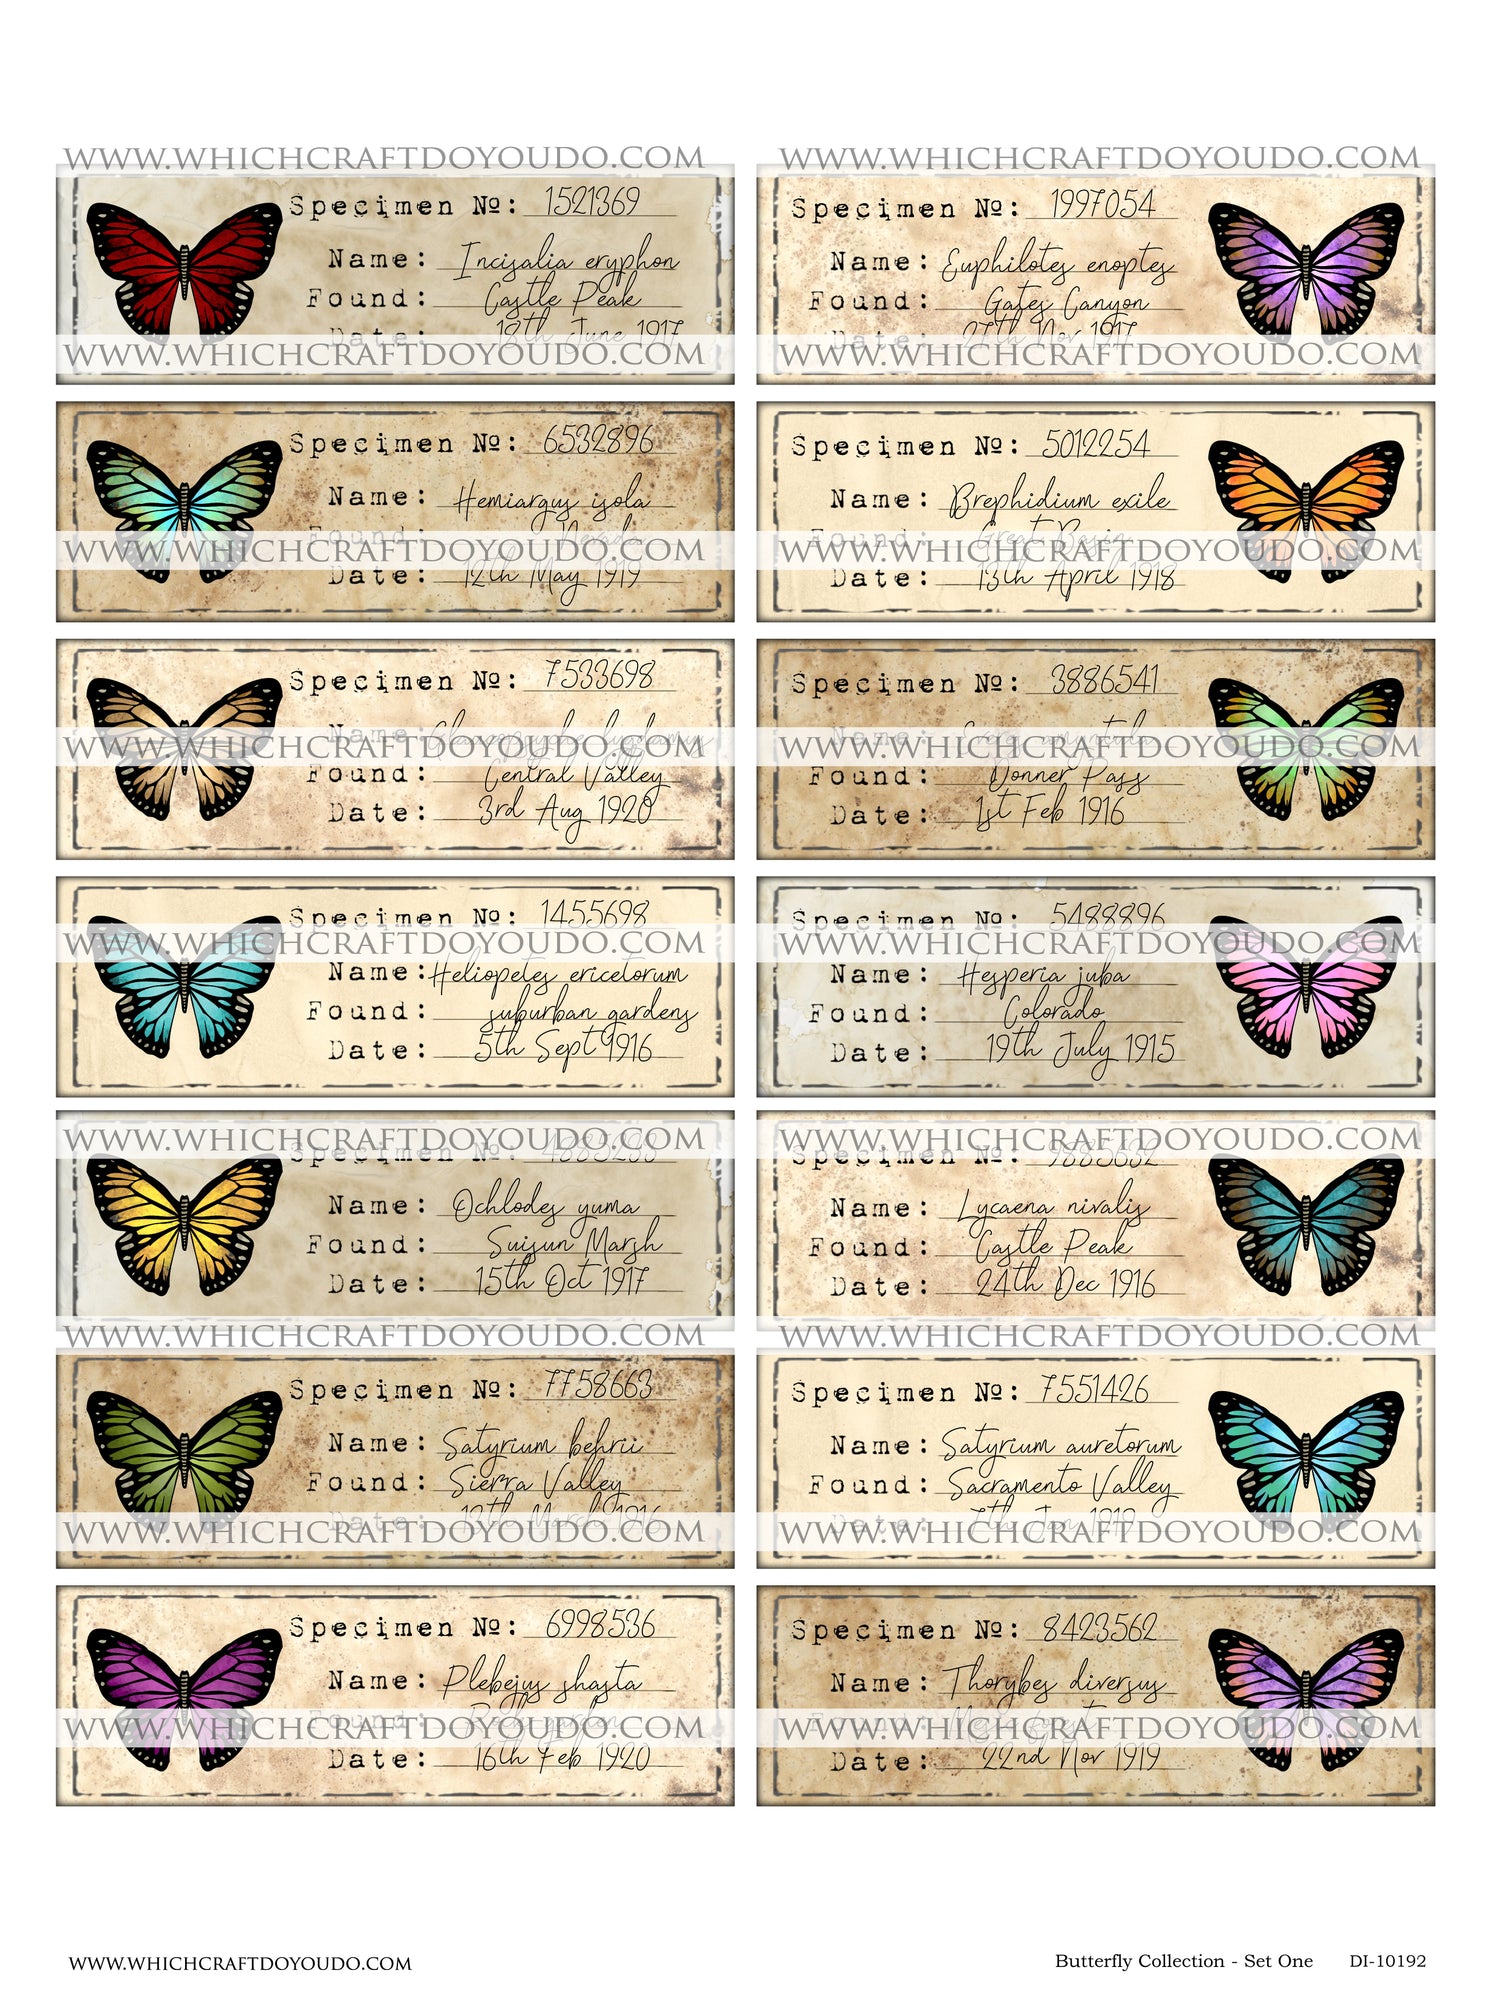 WWW.WHICHCRAFTDOYOUDO.COM
Specimen №: 1521369
Name: Incisalia eryphon
Found: Castle Peak
Date: 18th June 1917
WWW.WHICHCRAFTDOYOUDO.COM
WWW.WHICHCRAFTDOYOUDO.COM
Specimen №: 1997054
Name: Euphilotes enoptes
Found: Gates Canyon
Date: 27th Nov 1917
WWW.WHICHCRAFTDOYOUDO.COM
Specimen №: 6532896
Name: Hemiargus isola
Found: Nevada
WWW.WHICHCRAFTDOYOUDO.COM
Date: 12th May 1919
Specimen №: 5012254
Name: Brephidium exile
Found: Great Basin
WWW.WHICHCRAFTDOYOUDO.COM
Date: 13th April 1918
Specimen №: 7533698
Name: Glaucopsyche lygdamus
WWW.WHICHCRAFTDOYOUDO.COM
Found: Central Valley
Date: 3rd Aug 1920
Specimen №: 3886541
Name: Everes amyntula
WWW.WHICHCRAFTDOYOUDO.COM
Found: Donner Pass
Date: 1st Feb 1916
Specimen №: 1455698
WWW.WHICHCRAFTDOYOUDO.COM
Name: Heliopetes ericetorum
Found: suburban gardens
Date: 5th Sept 1916
Specimen №: 5488896
WWW.WHICHCRAFTDOYOUDO.COM
Name: Hesperia juba
Found: Colorado
Date: 19th July 1915
WWW.WHICHCRAFTDOYOUDO.COM
Specimen №:
Name: Ochlodes yuma
Found: Suisun Marsh
Date: 15th Oct 1917
WWW.WHICHCRAFTDOYOUDO.COM
WWW.WHICHCRAFTDOYOUDO.COM
Specimen №:
Name: Lycaena nivalis
Found: Castle Peak
Date: 24th Dec 1916
WWW.WHICHCRAFTDOYOUDO.COM
Specimen №: 7758663
Name: Satyrium behrii
Found: Sierra Valley
Date: March 1916
WWW.WHICHCRAFTDOYOUDO.COM
Specimen №: 7551426
Name: Satyrium auretorum
Found: Sacramento Valley
Date: 7th Jan 1919
WWW.WHICHCRAFTDOYOUDO.COM
Specimen №: 6998536
Name: Plebejus shasta
Found: Rocky garden
WWW.WHICHCRAFTDOYOUDO.COM
Date: 16th Feb 1920
Specimen №: 8423562
Name: Thorybes diversus
Found: forest
WWW.WHICHCRAFTDOYOUDO.COM
Date: 22nd Nov 1919
WWW.WHICHCRAFTDOYOUDO.COM
Butterfly Collection - Set One DI-10192